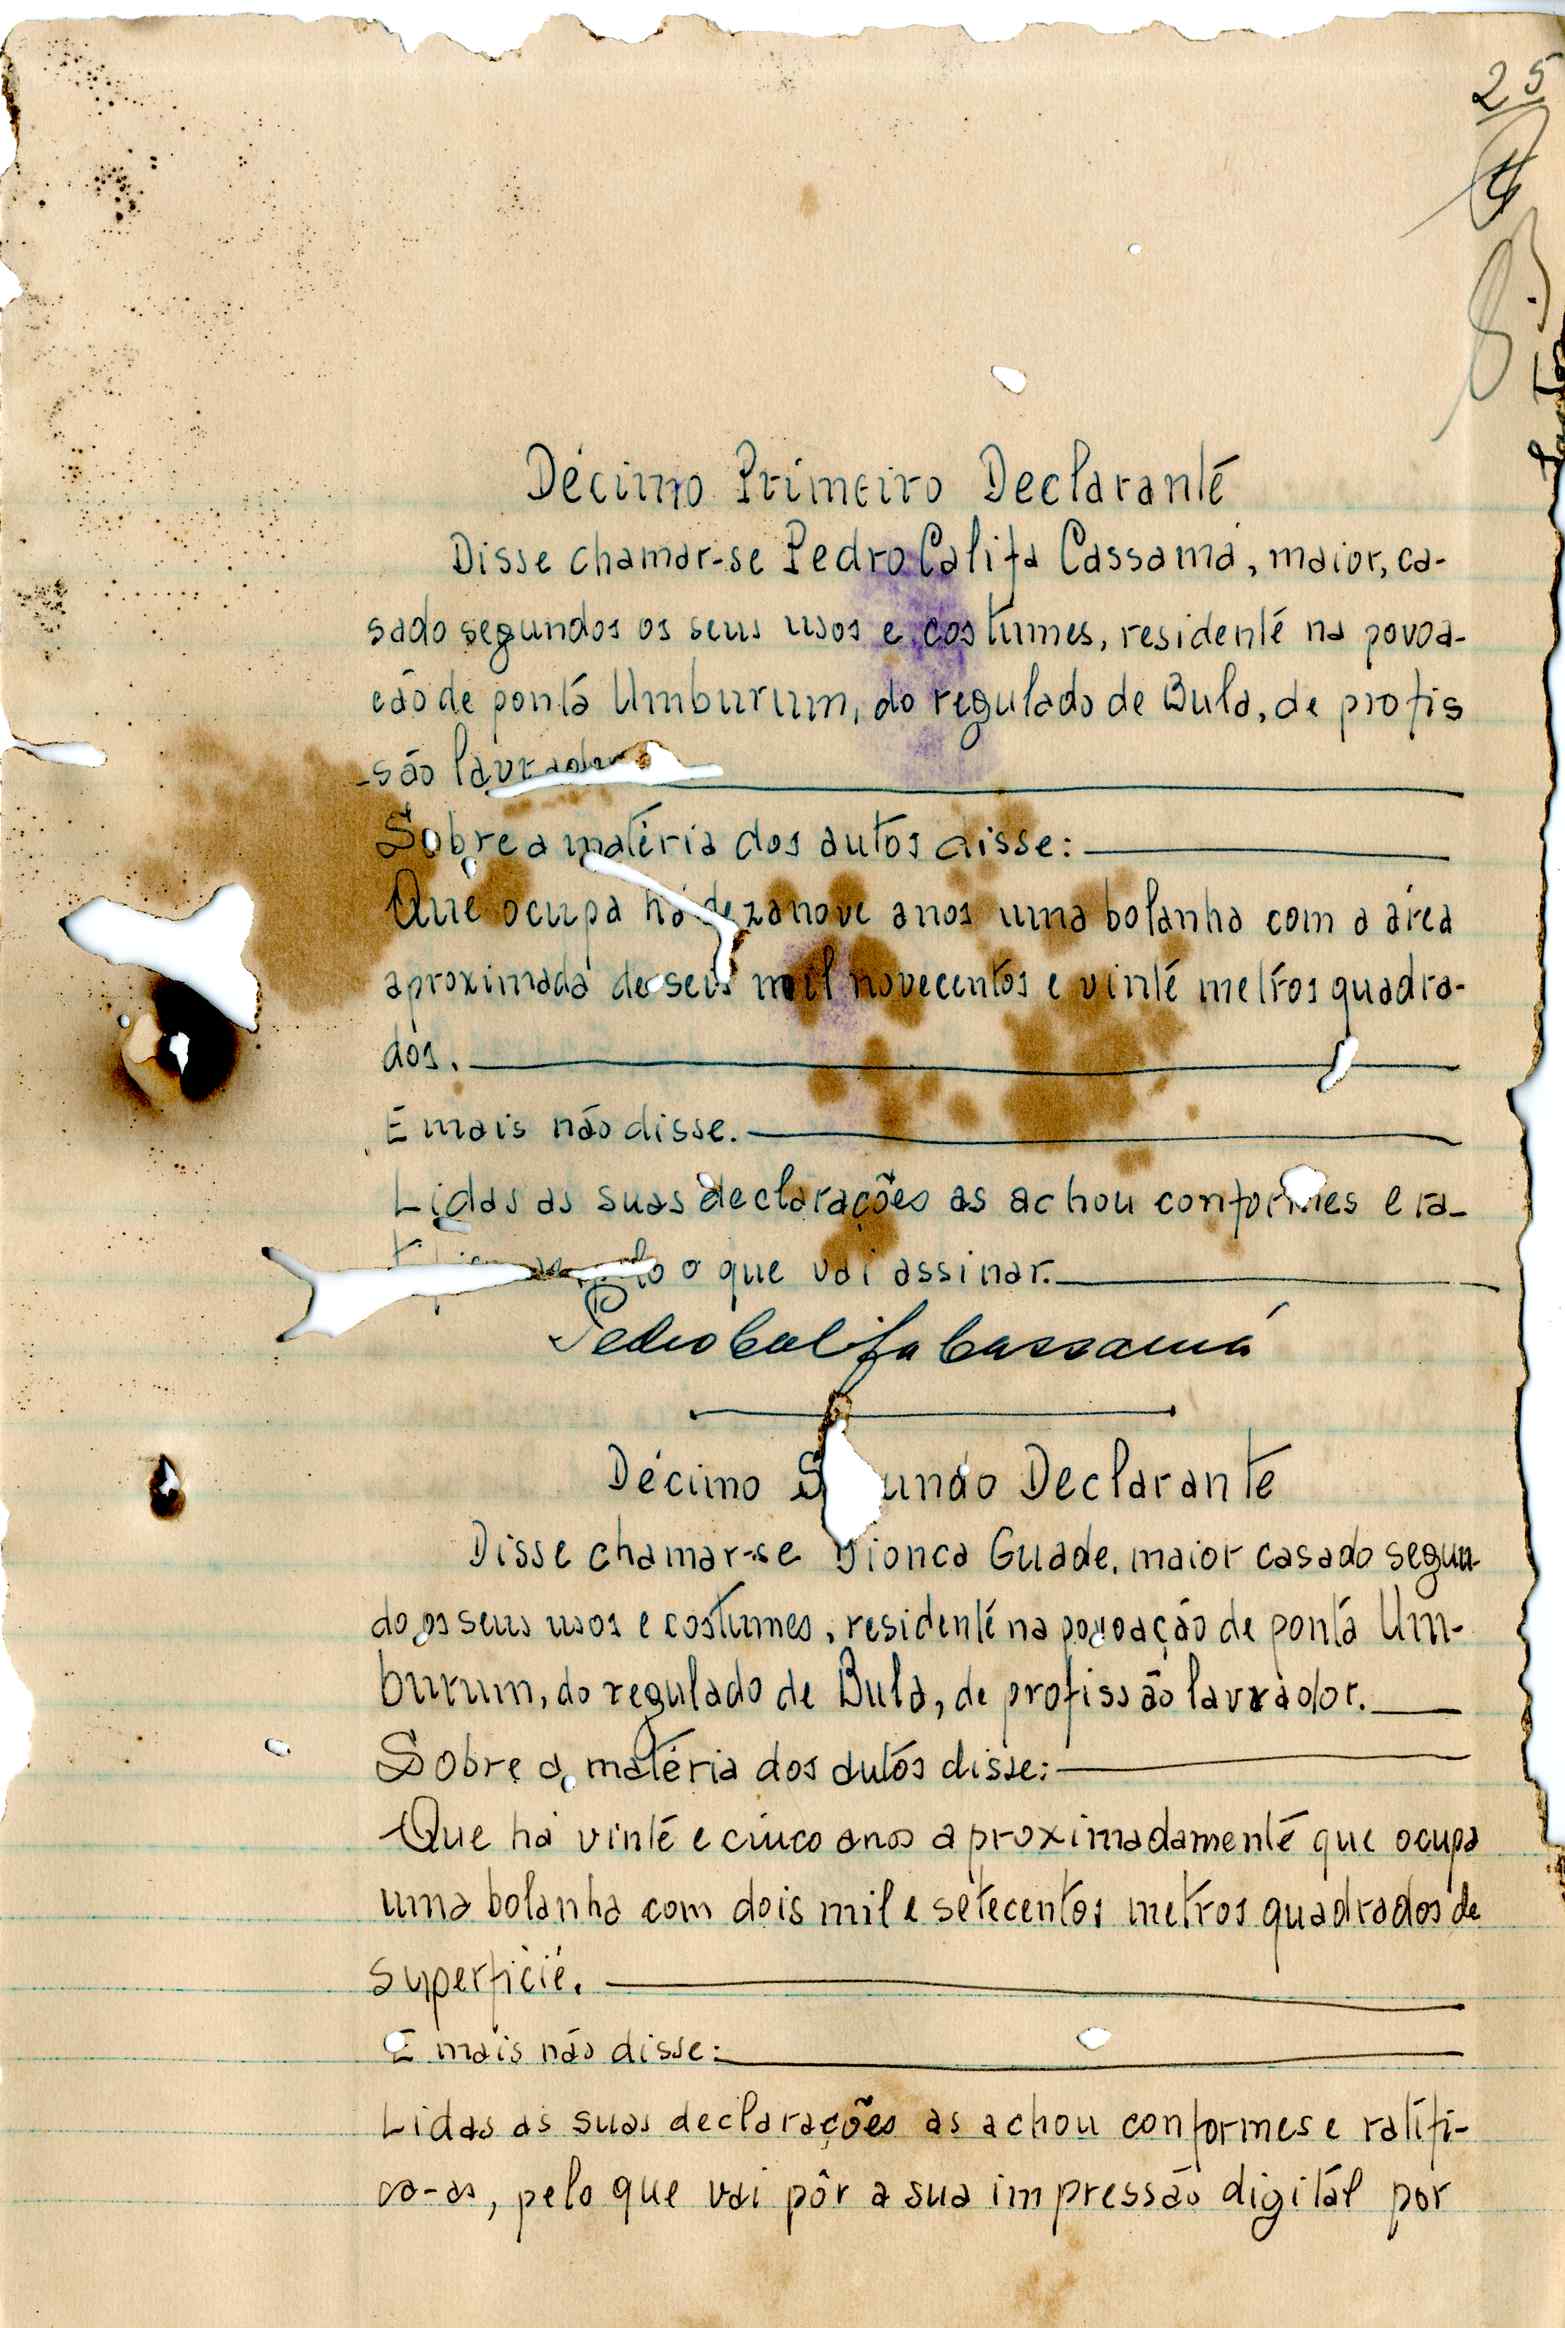 25
Décimo Primeiro Declaranté
Disse chamar-se Pedro Califa Cassamá, maior, ca-
sado segundos os seus usos e costumes, residenté na povoa-
ção de pontá Umburum, do regulado de Bula, de profis
-são lavrador
Sobre a matéria dos autos disse:
Que ocupa há dezanove anos uma bolanha com a área
aproximada de seis mil novecentos e vinté metros quadra-
dos.
E mais não disse.
Lidas as suas declarações as achou conformes e ra-
o que vai assinar.
Pedro Califa Cassamá
Décimo Segundo Declarante
Disse chamar-se Dionca Guade, maior casado segun-
do os seus usos e costumes, residenté na povoação de pontá Um-
burum, do regulado de Bula, de profissão lavrador.
Sobre a matéria dos autós disse:
Que há vinté e cinco anos aproximadamenté que ocupa
uma bolanha com dois mil e setecentos metros quadrados de
superficié.
E mais não disse:
Lidas as suas declarações as achou conformes e ratifi-
ca-as, pelo que vai pôr a sua impressão digitál por